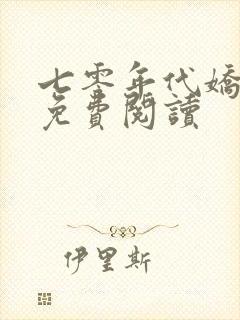 七零年代嬌
免費閱讀
伊里斯